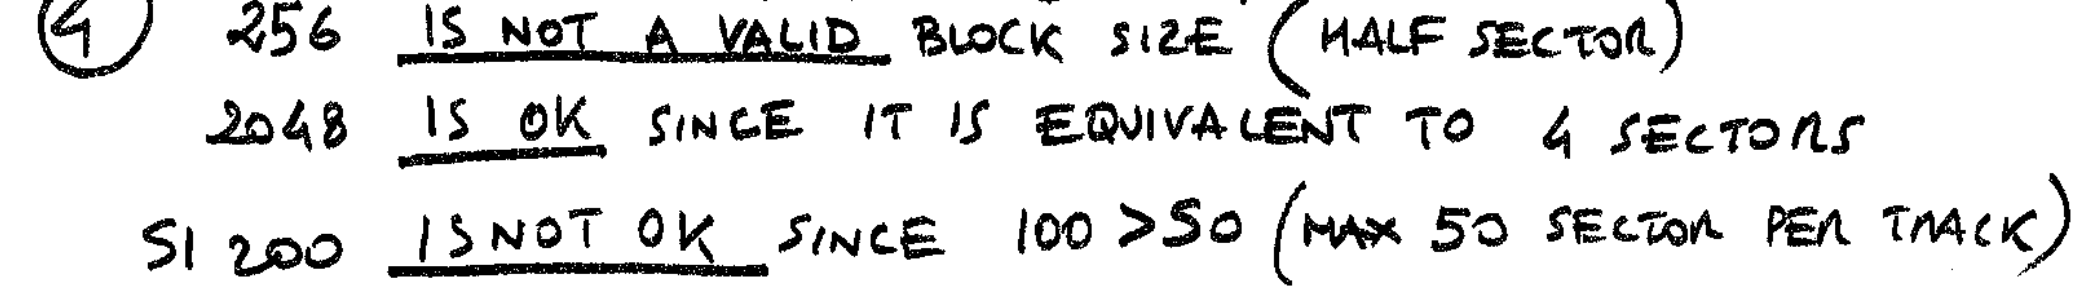 4 256 IS NOT A VALID BLOCK SIZE (HALF SECTOR)
2048 IS OK SINCE IT IS EQUIVALENT TO 4 SECTORS
51200 IS NOT OK SINCE 100 > 50 (MAX 50 SECTOR PER TRACK)